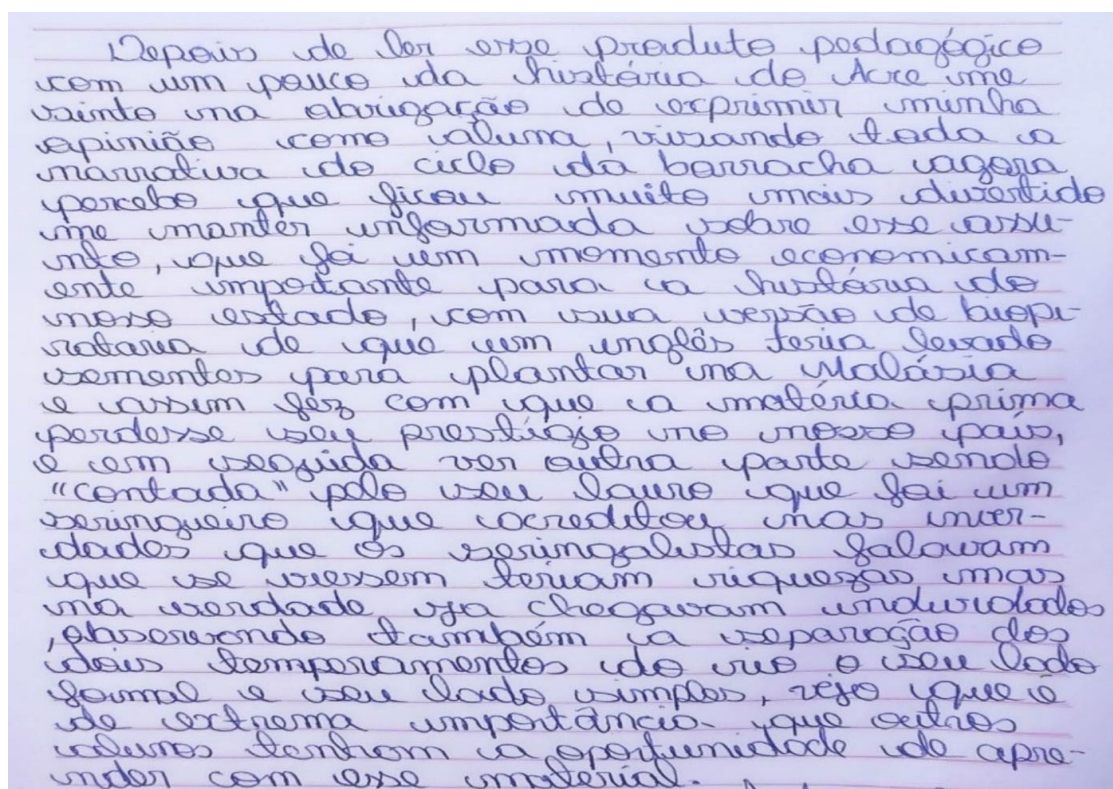 Depois de ler esse produto pedagógico
com um pouco da história do Acre me
sinto na obrigação de exprimir minha
opinião como aluna, visando toda a
narrativa do ciclo da borracha agora
percebo que ficou muito mais divertido
me manter informada sobre esse assu-
nto, que foi um momento economicam-
ente importante para a história do
nosso estado, com sua versão de biopi-
rataria de que um inglês teria levado
sementes para plantar na Malásia
e assim fez com que a matéria prima
perdesse seu prestígio no nosso país,
e em seguida ver outra parte sendo
"contada" pelo seu lauro que foi um
seringueiro que acreditou nas inver-
dades que os seringalistas falavam
que se viessem teriam riquezas mas
na verdade já chegavam endividados
, observando também a separação dos
dois temperamentos do rio o seu lado
formal e seu lado simples, vejo que é
de extrema importância que outros
alunos tenham a oportunidade de apre-
nder com esse material.